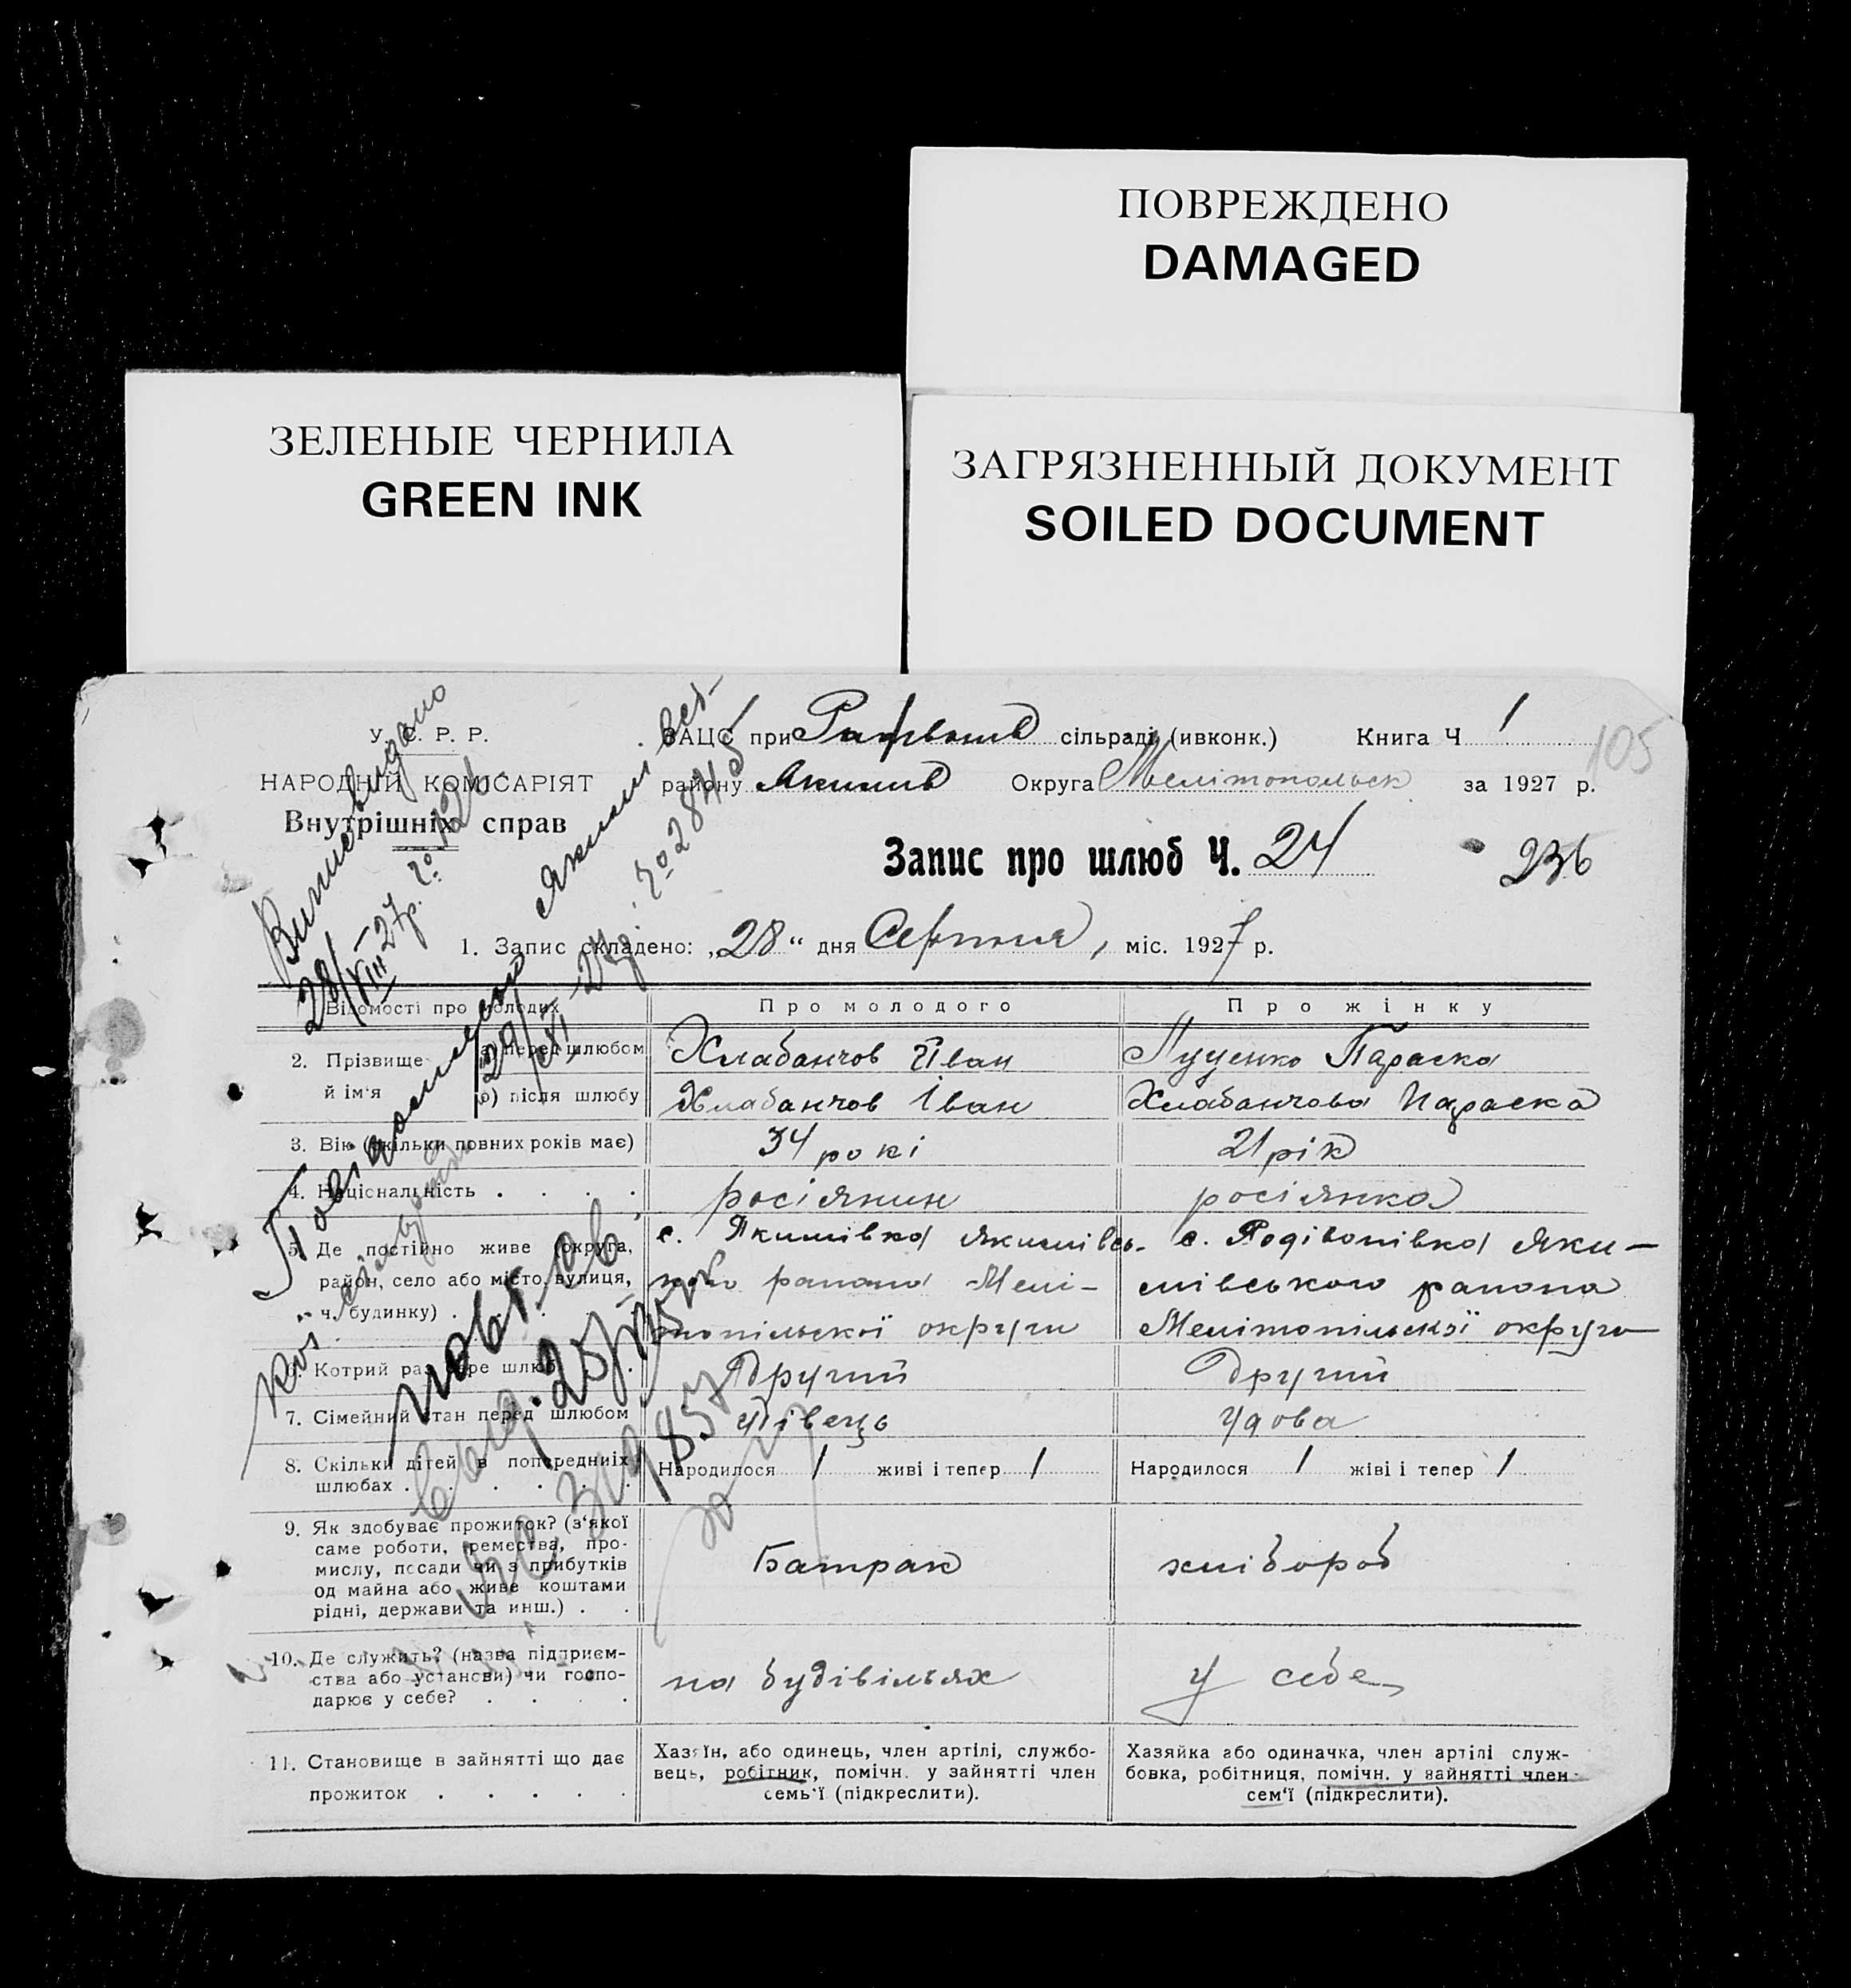 ПОВРЕЖДЕНО
DAMAGED
ЗЕЛЕНЫЕ ЧЕРНИЛА
GREEN INK
ЗАГРЯЗНЕННЫЙ ДОКУМЕНТ
SOILED DOCUMENT
У. С. Р. Р.
НАРОДНИЙ КОМІСАРІЯТ
Внутрішніх справ
ЗАЦС при сільраді (ивконк.) Книга Ч 1
105
району Якимів Округа Мелітопольск за 1927 р.
Запис про шлюб Ч. 24
236
1. Запис складено: „28" дня Серпня, міс. 1927 р.
Відомості про молодих Про молодого Про жінку
2. Прізвище й ім'я
а) перед шлюбом Хлабанчов Іван Луценко Параска
б) після шлюбу Хлабанчов Іван Хлабанчова Параска
3. Вік (скільки повних років має) 34 рокі 21 рік
4. Національність . . . . росіянин росіянка
5. Де постійно живе (округа, район, село або місто, вулиця, ч. будинку) .
с. Якимівка Якимівсь- с. Родівонівка Яки-
кого района Мелі- мівського района
топільскої округи Мелітопільскої округи
6. Котрий раз бере шлюб . Другий Другий
7. Сімейний стан перед шлюбом удова
8. Скільки дітей в попередниіх шлюбах . . . . . Народилося 1 живі і тепер 1 Народилося 1 жіві і тепер 1
9. Як здобуває прожиток? (з'якої
саме роботи, ремества, про-
мислу, посади чи з прибутків
од майна або живе коштами
рідні, держави та инш.) . .
Батрак хлібороб
10. Де служить? (назва підприєм-
ства або установи) чи госпо-
дарює у себе? . . . .
на будівільях у себе
11. Становище в зайнятті що дає
прожиток . . . . .
Хазяїн, або одинець, член артілі, службо-
вець, робітник, помічн. у зайнятті член
семь'ї (підкреслити).
Хазяйка або одиначка, член артілі служ-
бовка, робітниця, помічн. у зайнятті член
сем'ї (підкреслити).